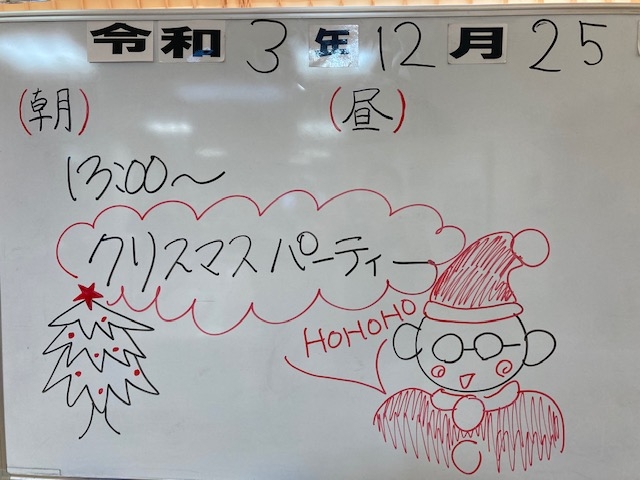 令和3年12月25
(朝) (昼)
13:00～
クリスマスパーティー
HOHOHO